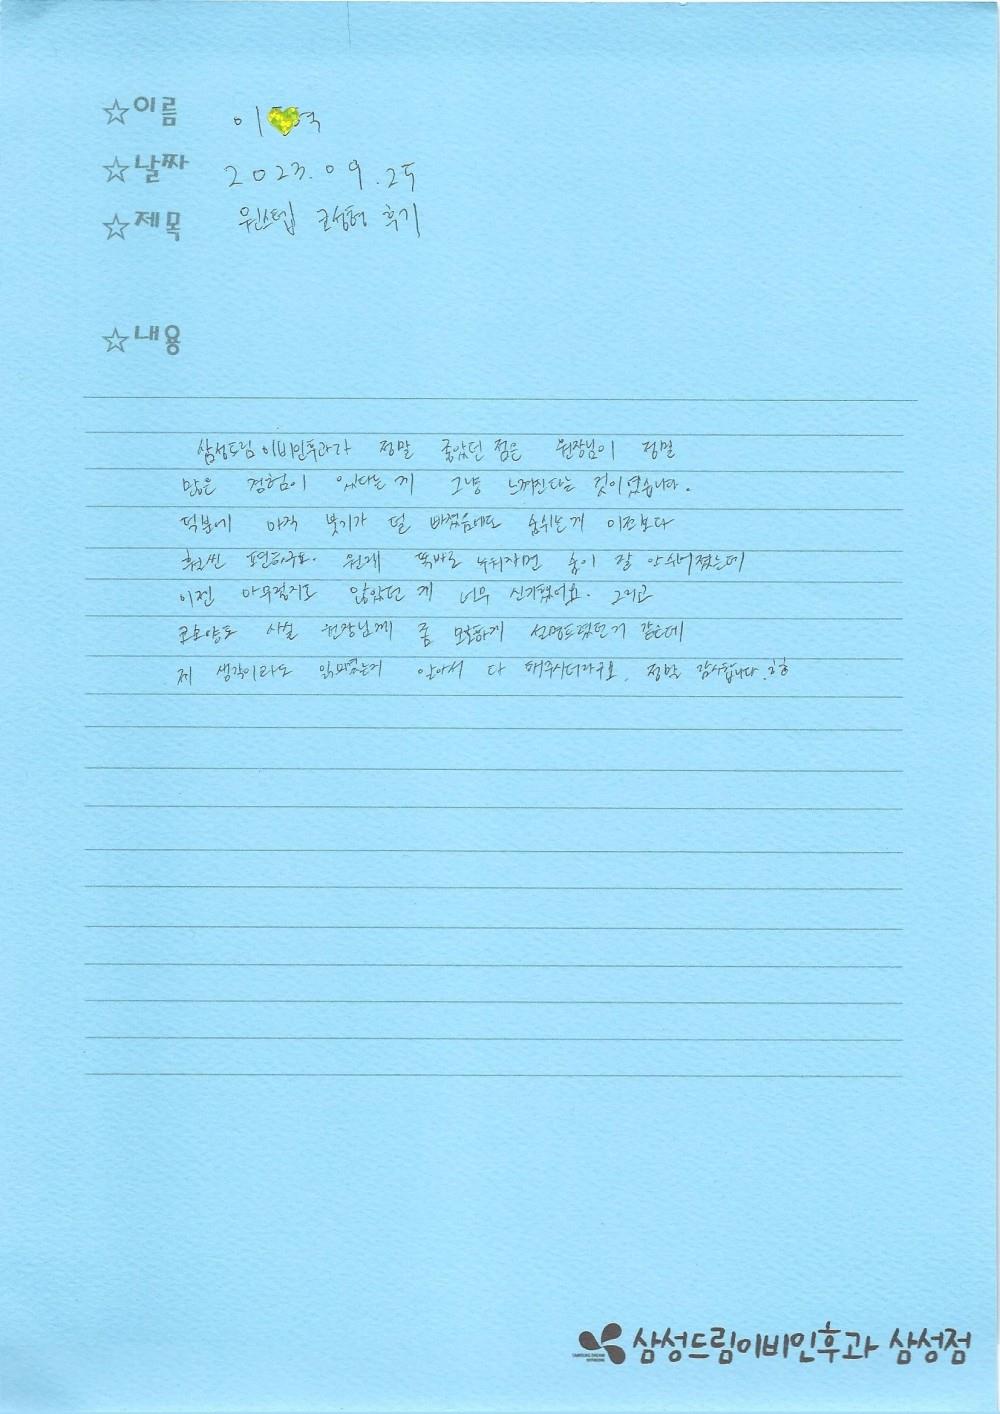 ☆이름 이 혁
☆날짜 2023.09.25
☆제목 원스텝 코성형 후기
☆내용
삼성드림이비인후과가 정말 좋았던 점은 원장님이 정말
많은 경험이 있다는게 그냥 느껴진다는 것이였습니다.
덕분에 아직 붓기가 덜 빠졌음에도 숨쉬는게 이전보다
훨씬 편하구요. 원래 똑바로 누워자면 숨이 잘 안쉬어졌는데
이젠 아무렇지도 않았던 게 너무 신기했어요. 그리고
코모양도 사실 원장님께 좀 모호하게 설명드렸던거 같은데
제 생각이라도 읽으셨는지 알아서 다 해주시더라구요. 정말 감사합니다.
삼성드림이비인후과 삼성점